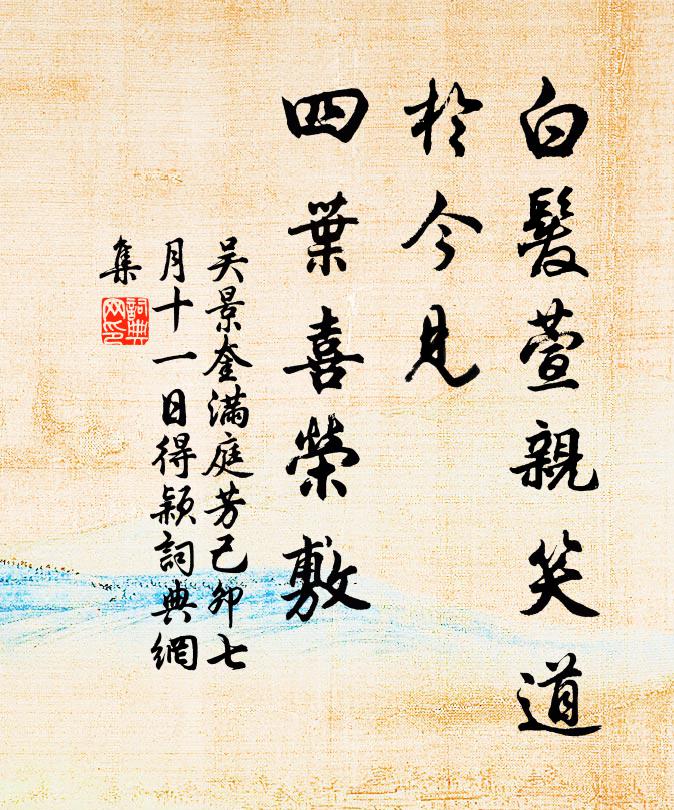 白髮萱親笑道
於今見
四葉喜榮敷
吴景奎滿庭芳己卯七
月十一日得穎詞典網
集
詞典
网印